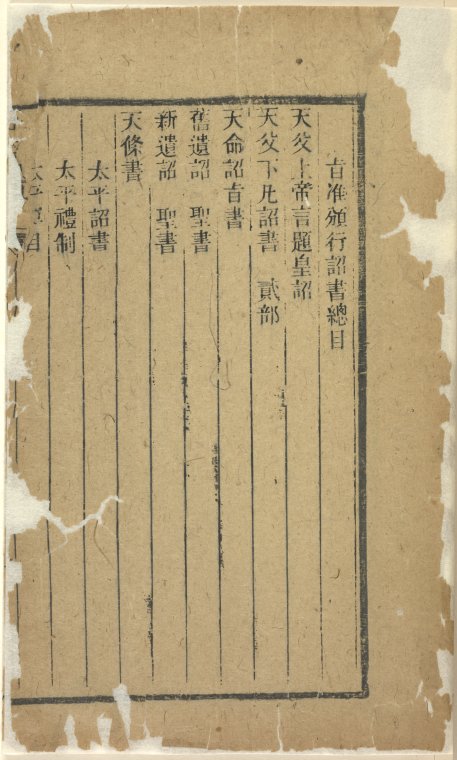 旨准頒行詔書總目
天父上帝言題皇詔
天父下凡詔書 貳部
天命詔旨書
舊遺詔 聖書
新遺詔 聖書
天條書
太平詔書
太平禮制
太平軍目